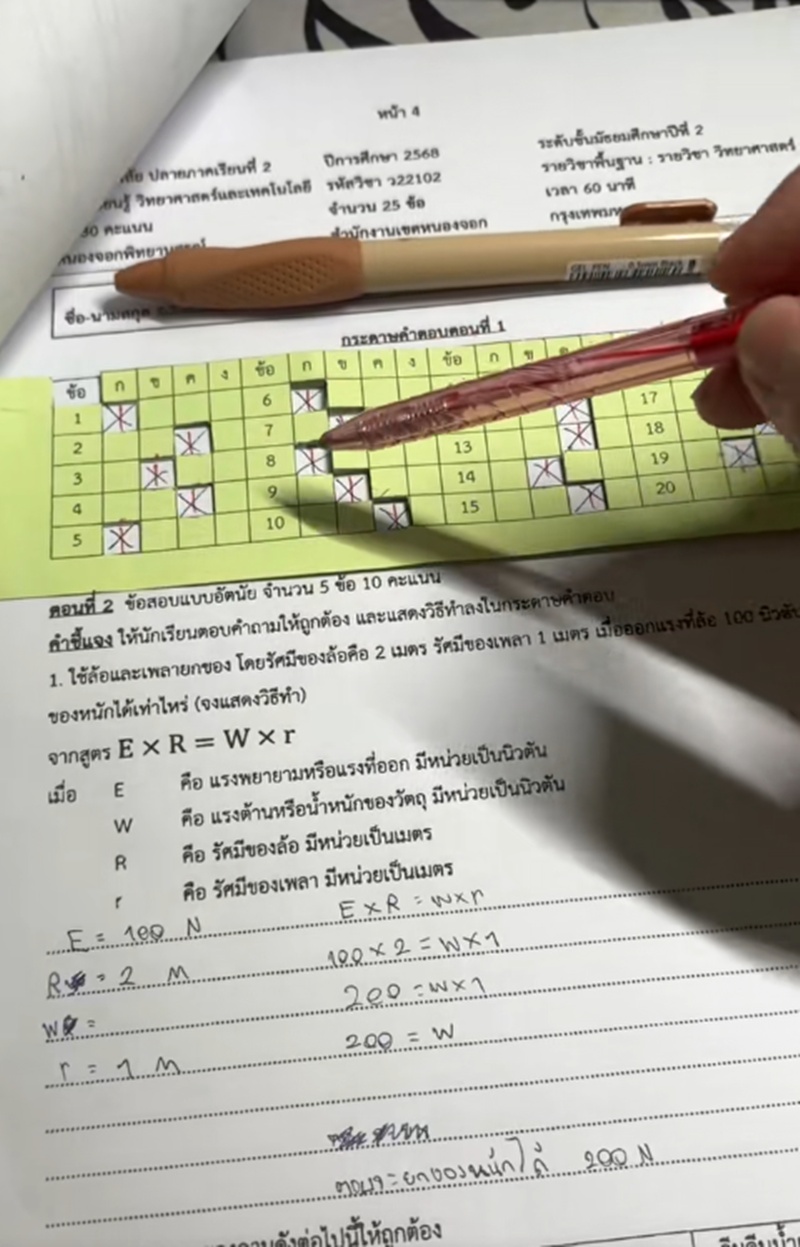 หน้า 4
ปลายภาคเรียนที่ 2 ปีการศึกษา 2568 ระดับชั้นมัธยมศึกษาปีที่ 2
วิทยาศาสตร์และเทคโนโลยี รหัสวิชา ว22102 รายวิชาพื้นฐาน : รายวิชา วิทยาศาสตร์
30 คะแนน จำนวน 25 ข้อ เวลา 60 นาที
สำนักงานเขตหนองจอก
ชื่อ-นามสกุล
กระดาษคำตอบตอนที่ 1
ข้อ ก ข ค ง ข้อ ก ข ค ง ข้อ ก ข
1 6
2 7 17
3 8 13 18
4 9 14 19
5 10 15 20
ตอนที่ 2 ข้อสอบแบบอัตนัย จำนวน 5 ข้อ 10 คะแนน
คำชี้แจง ให้นักเรียนตอบคำถามให้ถูกต้อง และแสดงวิธีทำลงในกระดาษคำตอบ
1. ใช้ล้อและเพลายกของ โดยรัศมีของล้อคือ 2 เมตร รัศมีของเพลา 1 เมตร เมื่อออกแรงที่ล้อ 100 นิวตัน
ของหนักได้เท่าไหร่ (จงแสดงวิธีทำ)
จากสูตร E × R = W × r
เมื่อ E คือ แรงพยายามหรือแรงที่ออก มีหน่วยเป็นนิวตัน
W คือ แรงต้านหรือน้ำหนักของวัตถุ มีหน่วยเป็นนิวตัน
R คือ รัศมีของล้อ มีหน่วยเป็นเมตร
r คือ รัศมีของเพลา มีหน่วยเป็นเมตร
E = 100 N E × R = W × r
R = 2 M 100 × 2 = W × 1
W = 200 = W × 1
r = 1 M 200 = W
ตอบ = ยกของหนักได้ 200 N
ดังต่อไปนี้ให้ถูกต้อง